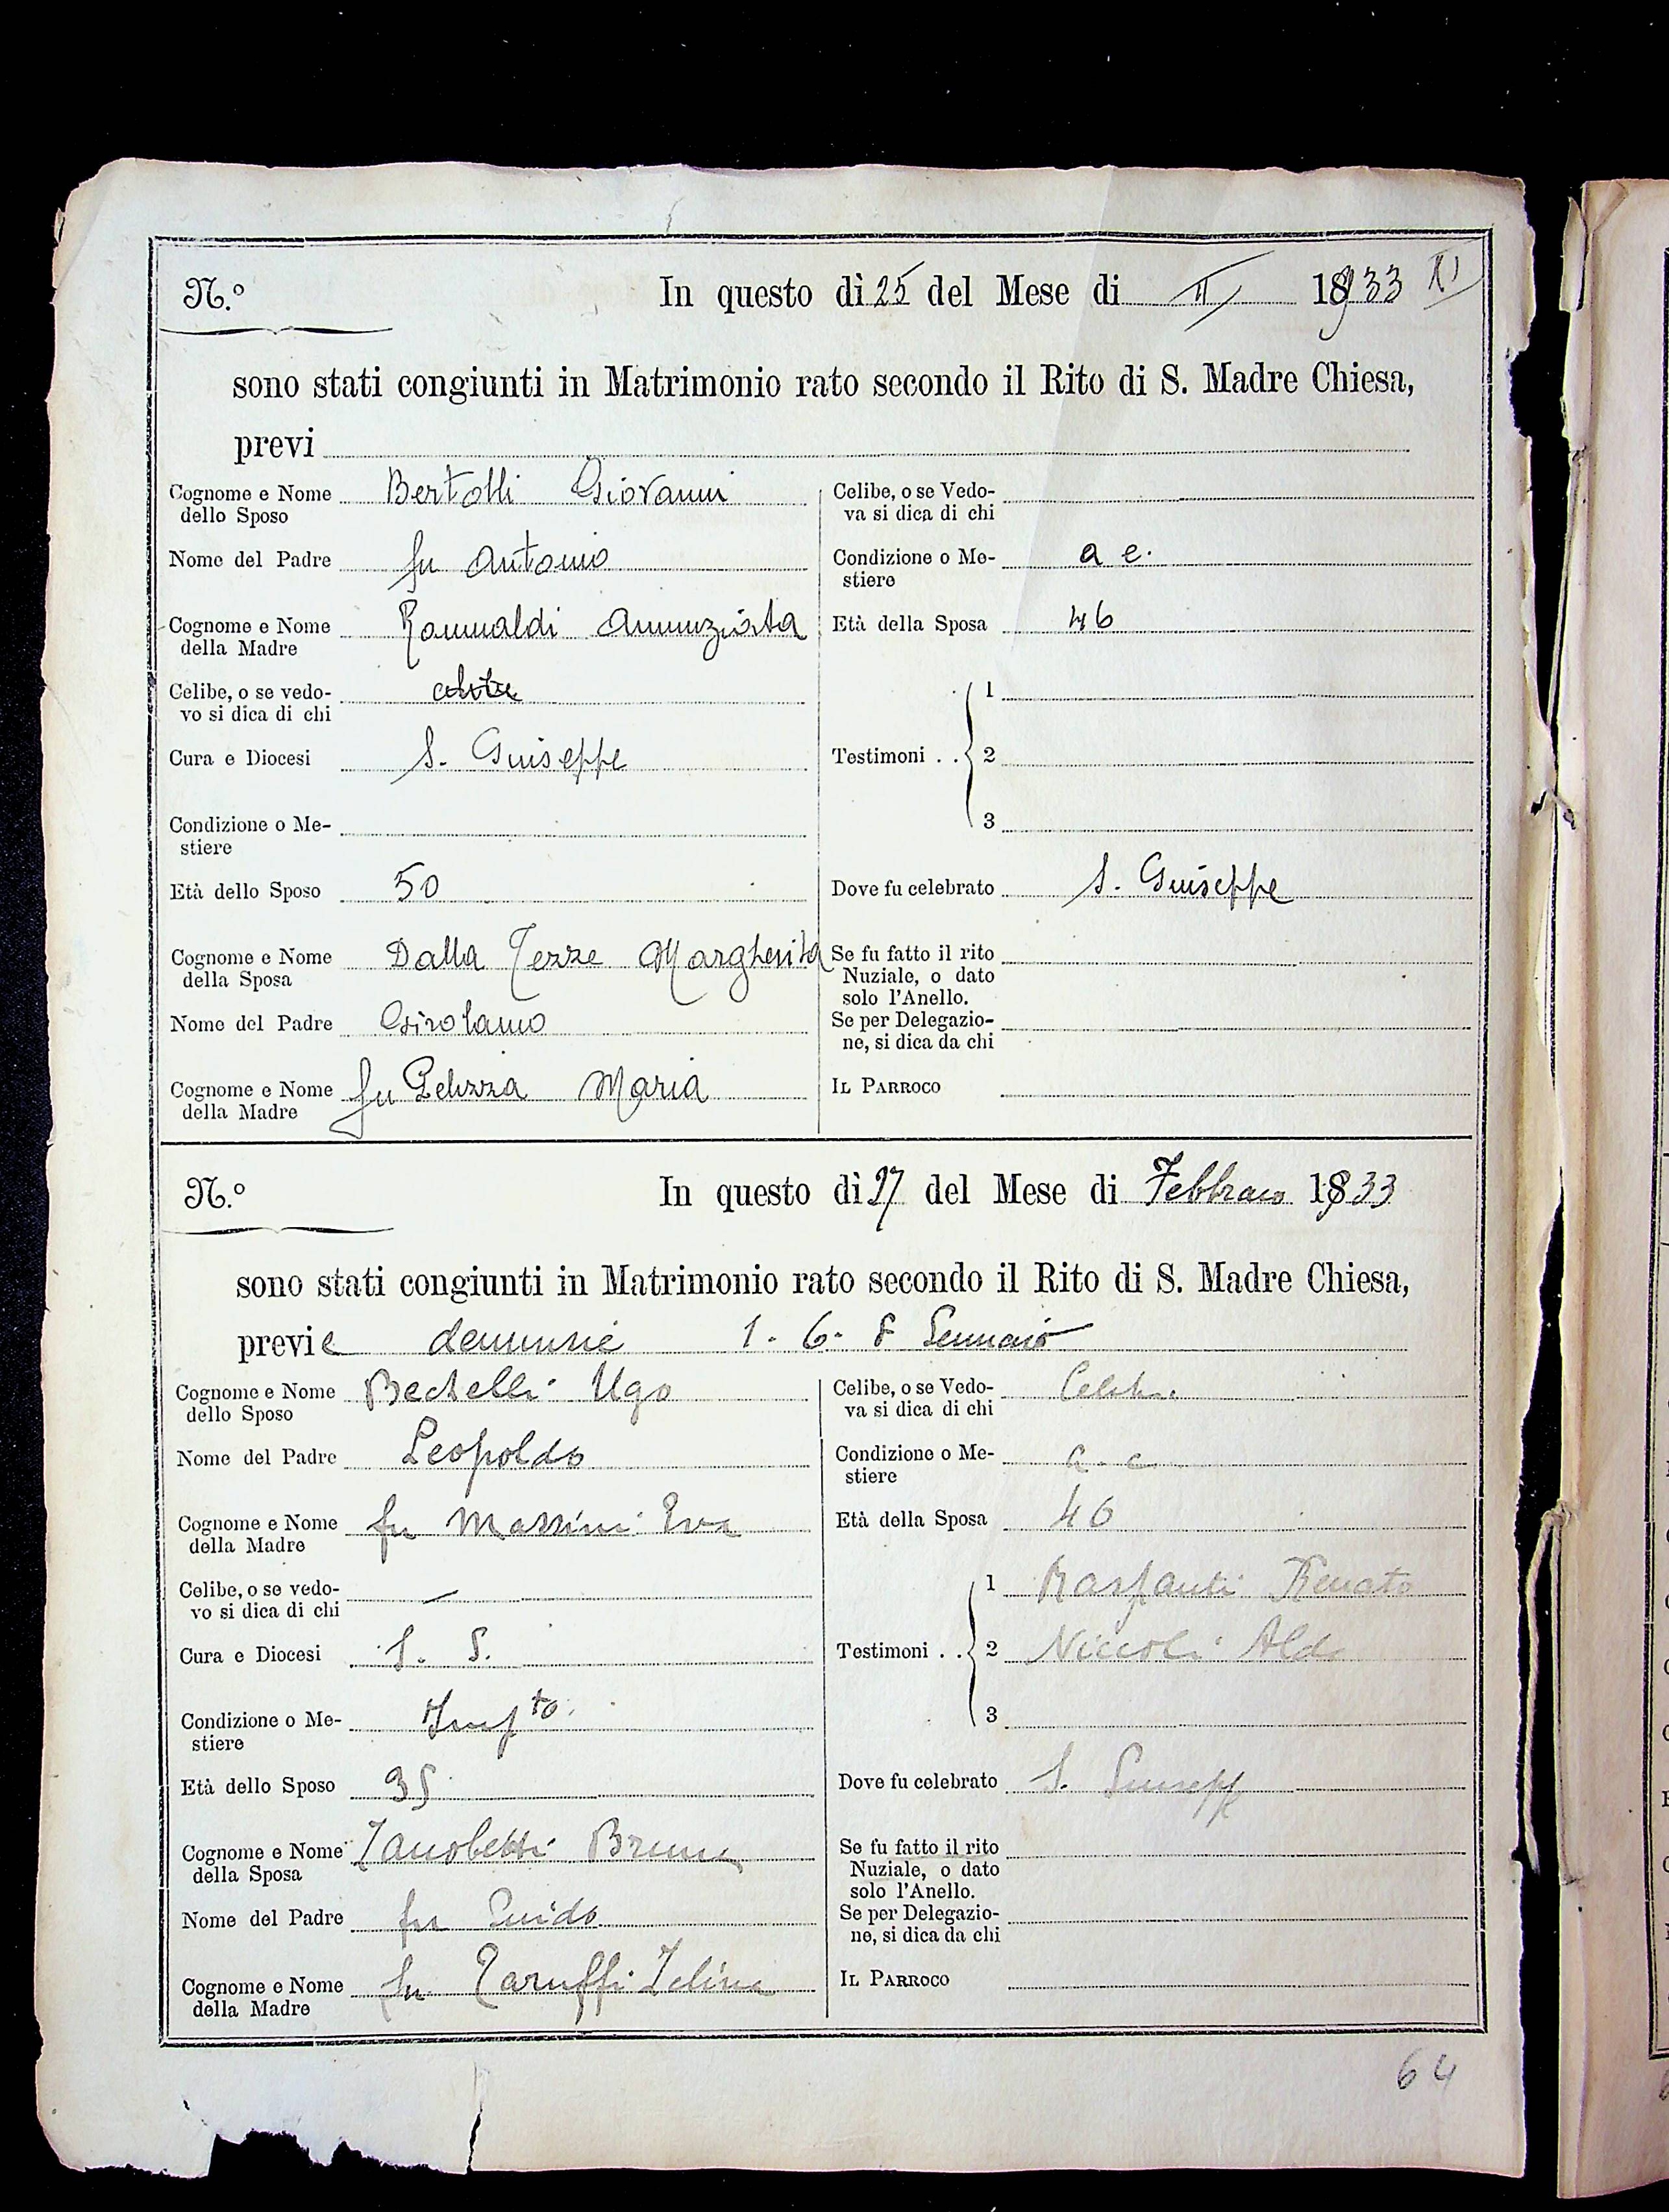 N.º In questo dì 25 del Mese di II 1933 XI
sono stati congiunti in Matrimonio rato secondo il Rito di S. Madre Chiesa,
previ
Cognome e Nome dello Sposo Bertolli Giovanni
Nome del Padre fu Antonio
Cognome e Nome della Madre Romualdi Annunziata
Celibe, o se vedovo si dica di chi celibe
Cura e Diocesi S. Giuseppe
Condizione o Mestiere
Età dello Sposo 50
Cognome e Nome della Sposa Dalla Tezze Margherita
Nome del Padre Girolamo
Cognome e Nome della Madre fu Maria
Celibe, o se Vedova si dica di chi
Condizione o Mestiere a c.
Età della Sposa 46
Testimoni . . 1
2
3
Dove fu celebrato S. Giuseppe
Se fu fatto il rito Nuziale, o dato solo l'Anello.
Se per Delegazione, si dica da chi
IL PARROCO
N.º In questo dì 27 del Mese di Febbraio 1933
sono stati congiunti in Matrimonio rato secondo il Rito di S. Madre Chiesa,
previe denunzie 1. 6. 8 Gennaio
Cognome e Nome dello Sposo Bechelli Ugo
Nome del Padre Leopoldo
Cognome e Nome della Madre fu Massini Eva
Celibe, o se vedovo si dica di chi —
Cura e Diocesi S. G.
Condizione o Mestiere Imp.to
Età dello Sposo 35
Cognome e Nome della Sposa Zanobetti Bruna
Nome del Padre fu Guido
Cognome e Nome della Madre fu Taruffi Zelina
Celibe, o se Vedova si dica di chi Celibe
Condizione o Mestiere a. c.
Età della Sposa 46
Testimoni . . 1 Raspanti Renato
2 Niccoli Aldo
3
Dove fu celebrato S. Giuseppe
Se fu fatto il rito Nuziale, o dato solo l'Anello.
Se per Delegazione, si dica da chi
IL PARROCO
64